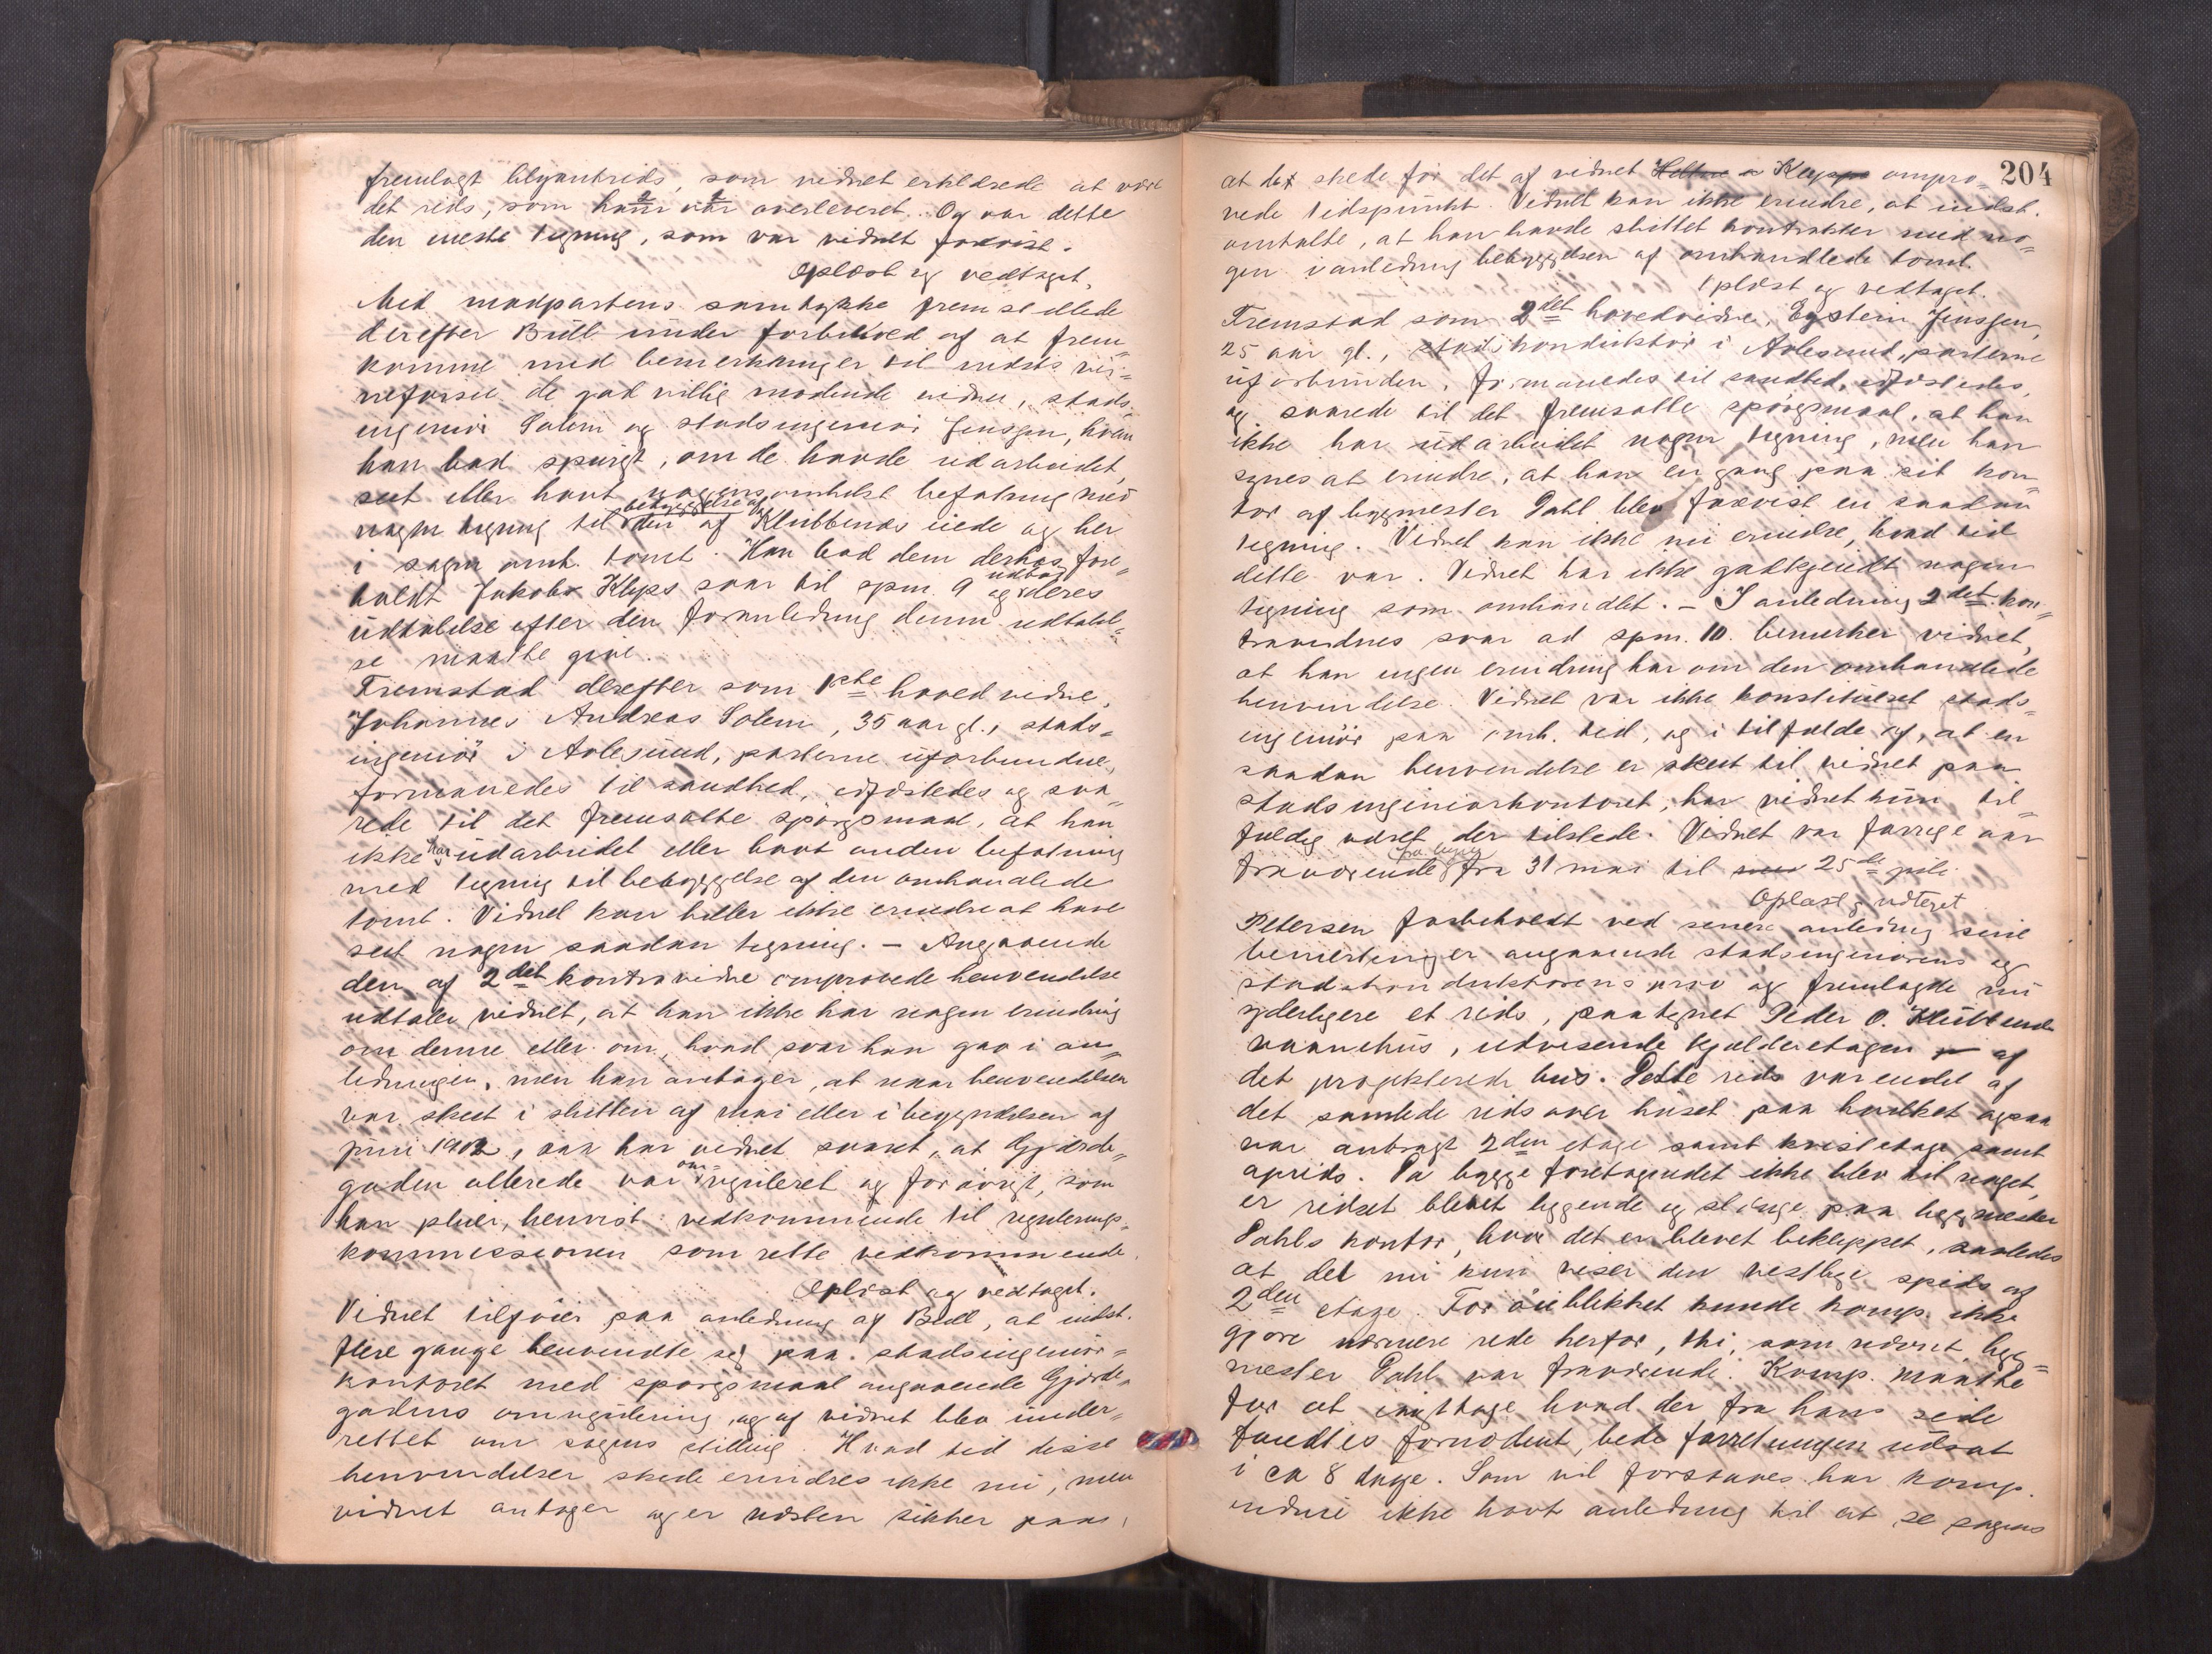 fremlagt blyantrids, som vidnet erklærede at være
det rids, som ham var overleveret. Og var dette
den eneste tegning, som var vidnet forevist.
Oplæst og vedtaget.
Med modpartens samtykke fremstillede
derefter Bull under forbehold af at frem=
komme med bemerkninger til
de godvillig mødende vidner, stads=
ingeniør Solem og stadsingeniør Jenssen, hvem
han bad spurgt, om de havde udarbeidet,
seet eller havt nogensomhelst befatning med
bebyggelse af
nogen tegning til den af Klubbenæs eiede og her
i sagen omh. tomt. Han bad dem derhos fore=
holdt Jakob Kleps svar til spm. 9 og deres
udtalelse efter den foranledning denne udtalel=
se maatte give.
Fremstod derefter som 1ste hovedvidne,
Johannes Andreas Solem, 35 aar gl., stads=
ingeniør i Aalesund, parterne uforbunden,
formanedes til sandhed, edfæstedes og sva=
rede til det fremsatte spørgsmaal, at han
ikke har udarbeidet eller havt anden befatning
med tegning til bebyggelse af den omhandlede
tomt. Vidnet kan heller ikke erindre at have
seet nogen saadan tegning. – Angaaende
den af 2det kontravidne omprovede henvendelse
udtaler vidnet, at han ikke har nogen erindring
om denne eller om, hvad svar han gav i an=
ledningen, men han antager, at naar henvendelsen
var skeet i slutten af mai eller i begyndelsen af
juni 1902, saa har vidnet svaret, at Gjørde=
om=
gaden allerede var reguleret og forøvrigt, som
han pleier, henvist vedkommende til regulerings=
kommissionen som rette vedkommende.
Oplæst og vedtaget.
Vidnet tilføier paa anledning af Bull, at indst.
flere gange henvendte sig paa stadsingeniør=
kontoret med spørgsmaal angaaende Gjørde=
gadens omregulering, og af vidnet blev under=
rettet om sagens stilling. Hvad tid disse
henvendelser skede erindres ikke nu, men
vidnet antager og er næsten sikker paa,
204
at det skede før det af vidnet Kleppe ompro=
vede tidspunkt. Vidnet kan ikke erindre, at indst.
omtalte, at han havde sluttet kontrakter med no=
gen i anledning bebyggelsen af omhandlede tomt.
Oplæst og vedtaget.
Fremstod som 2det hovedvidne, Eystein Jenssen,
25 aar gl., stadskonduktør i Aalesund, parterne
uforbunden, formanedes til sandhed, edfæstedes,
og svarede til det fremsatte spørgsmaal, at han
ikke har udarbeidet nogen tegning, men han
synes at erindre, at han en gang paa sit kon=
tor af bygmester Dahl blev forevist en saadan
tegning. Vidnet kan ikke nu erindre, hvad tid
dette var. Vidnet har ikke godkjendt nogen
tegning som omhandlet. – I anledning 2det kon=
travidnes svar ad spm. 10. bemerker vidnet,
at han ingen erindring har om den omhandlede
henvendelse. Vidnet var ikke konstitueret stads=
ingeniør paa omh. tid, og i tilfælde af, at en
saadan henvendelse er skeet til vidnet paa
stadsingeniørkontoret, har vidnet kun til=
fældig været der tilstede. Vidnet var forrige aar
fra byen
fraværende fra 31 mai til 25de juli.
Oplæst og vedtaget
Petersen forbeholdt ved senere anledning sine
bemerkninger angaaende stadsingeniørens og
stadskonduktørens prov og fremlagde nu
yderligere et rids, paategnet Peder O. Klubbenes
vaanehus, udvisende kjælderetagen af
det projekterede hus. Dette rids var endel af
det samlede rids over huset paa hvilket ogsaa
var anbragt 2den etage samt kvistetage samt
oprids. Da byggeforetagendet ikke blev til noget,
er ridset blevet liggende og slænge paa bygmester
Dahls kontor, hvor det er blevet beklippet, saaledes
at det nu kun viser den vestlige spids af
2den etage. For øieblikket kunde komp. ikke
gjøre nærmere rede herfor, thi, som nævnt, byg=
mester Dahl var fraværende. Komp. maatte
for at iagttage hvad der fra hans side
fandtes fornødent, bede forretningen udsat
i ca 8 dage. Som vil forstaaes har komp.
endnu ikke havt anledning til at se sagens